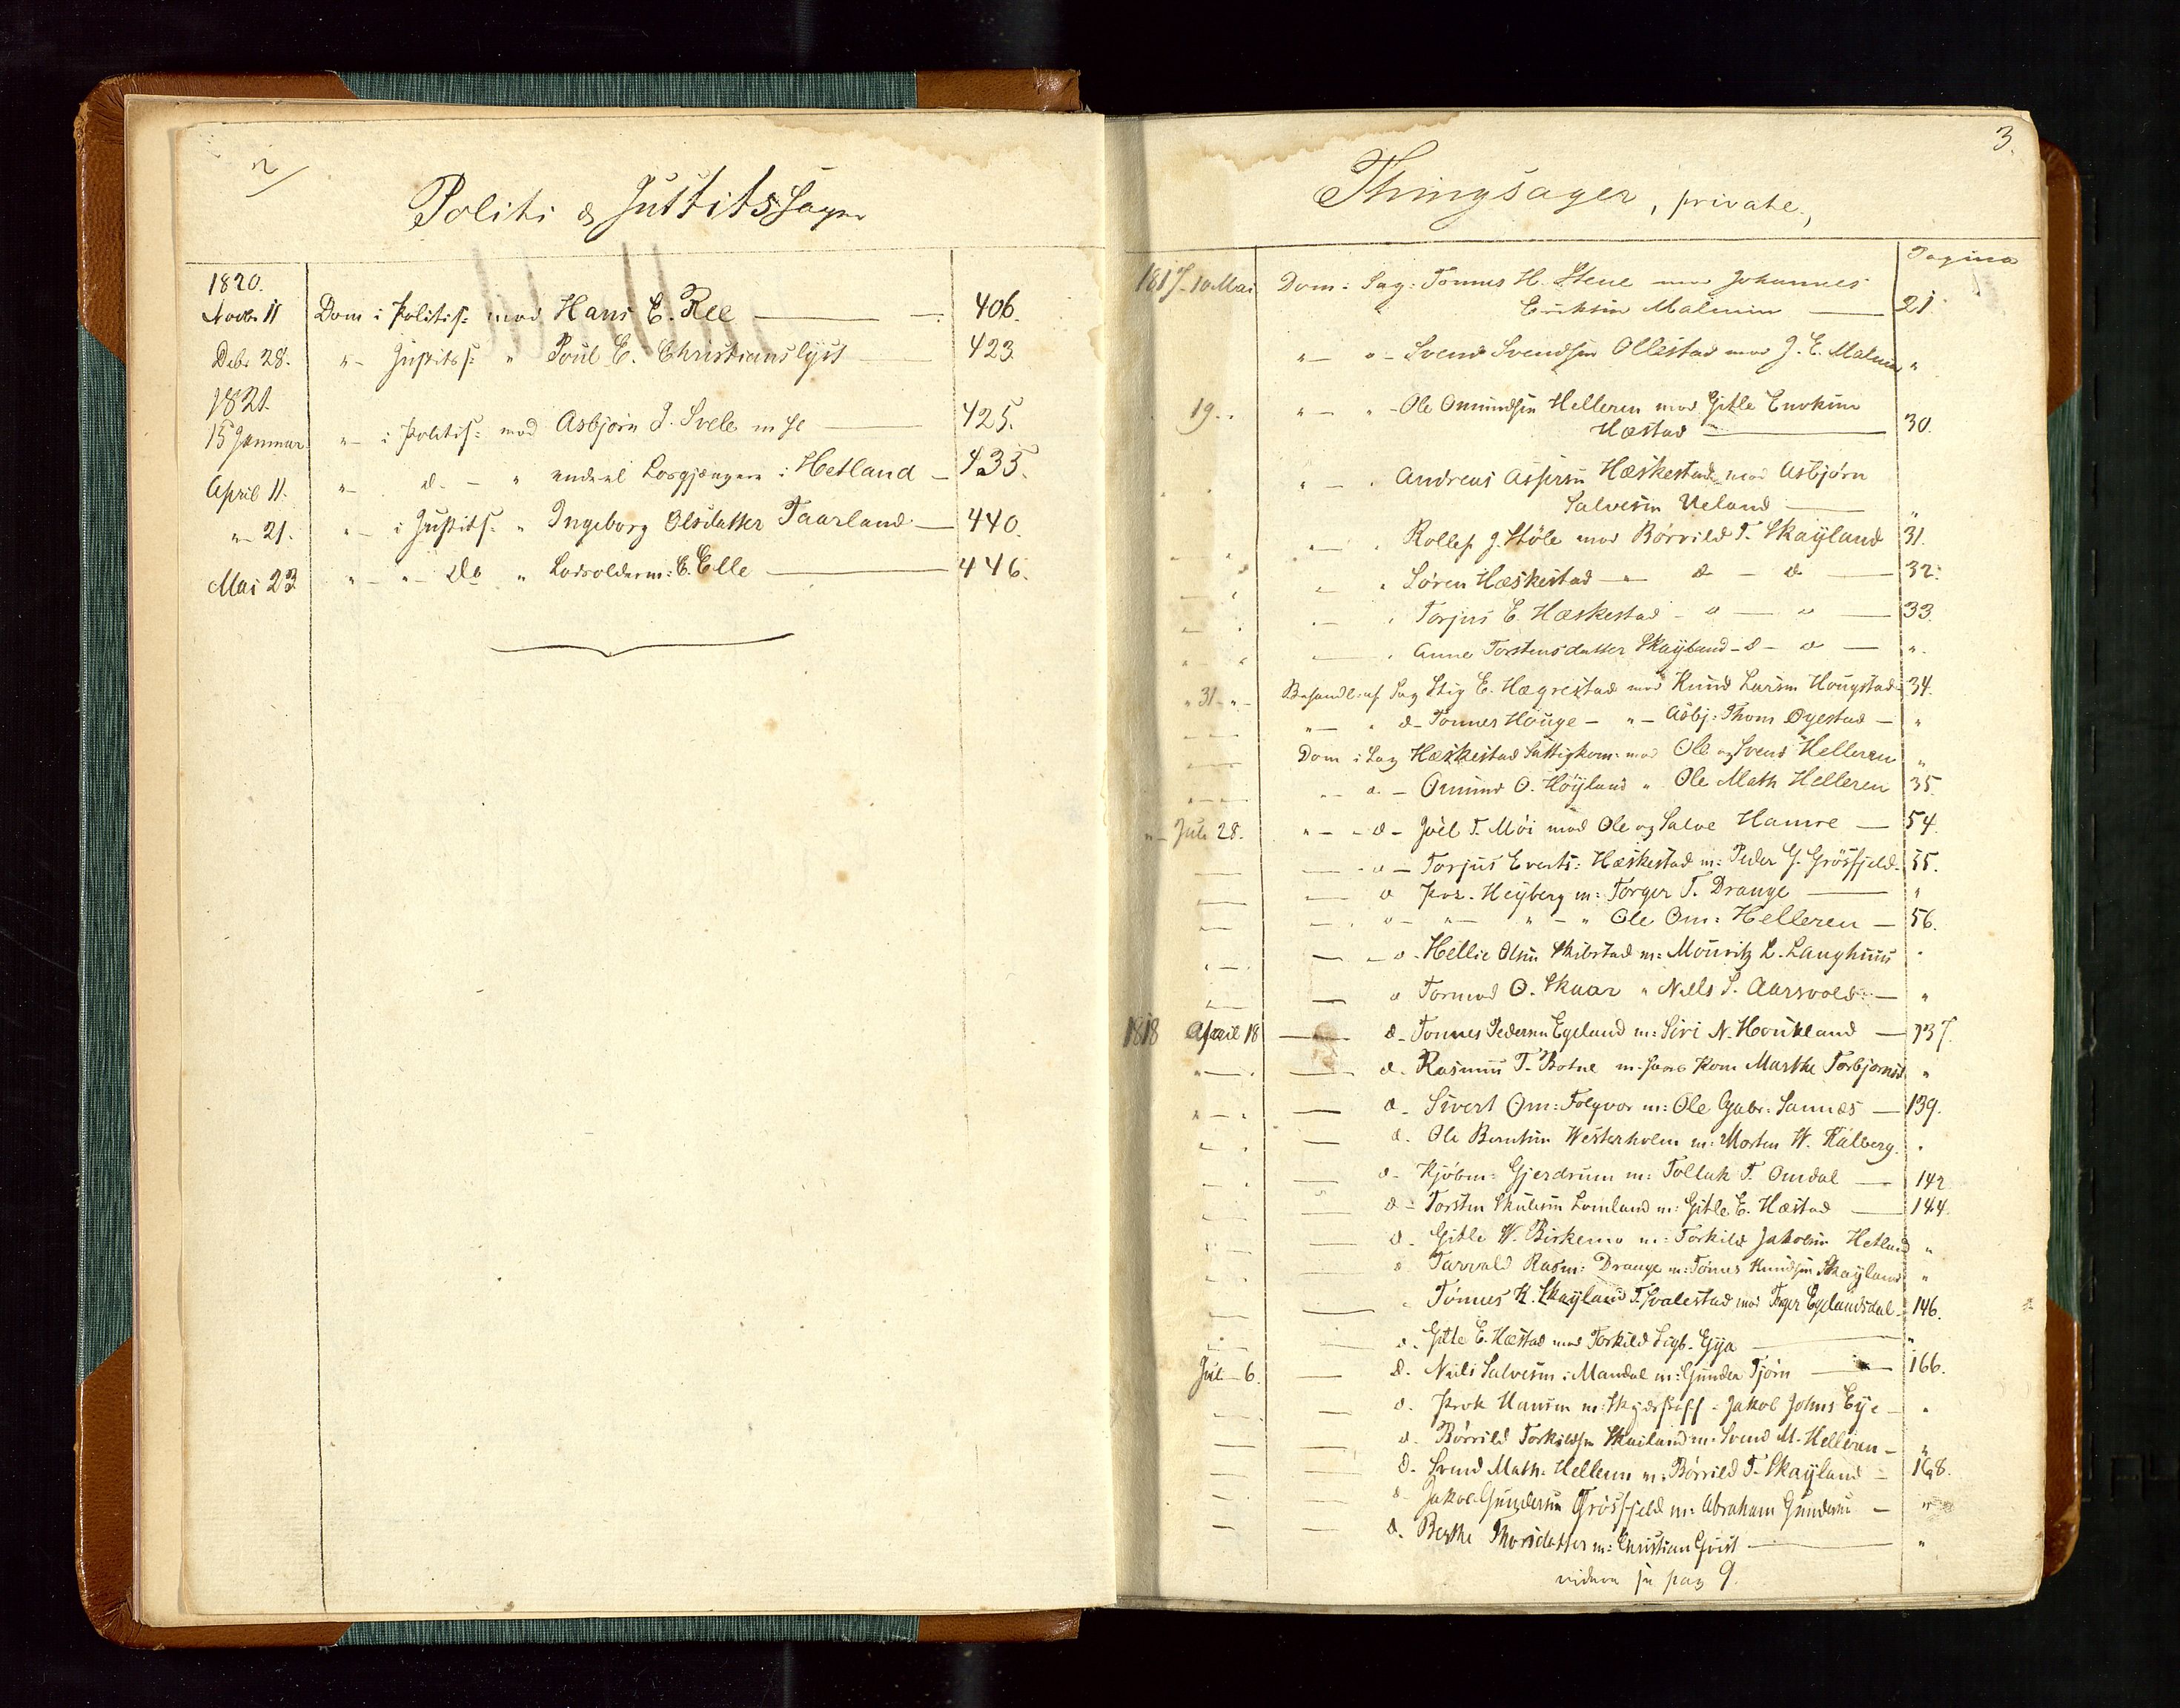 2/
Politi & JustitsSager
1820.
Novbr 11 Dom i Politis: mod Hans E. Ree — 406.
Debr 28. "— Justitss: " Poul E. Christianslyst — 423.
1821.
15 Januar "— i Politis: mod Asbjørn J. Svele — 425.
April 11. "— d. — " Losgjængere i Hetland — 435.
"— 21. "— i Justits: " Ingeborg Olsdatter Taarland — 440.
Mai 23 "— "— Do " E. Elle — 446.
3.
Thingsager, private,
Pagina
1817. 10 Mai Dom: Sag: Tønnes H. Stene mod Johannes
Eriksen Malmin — 21.
"— o— Svend Svendsen Ollestad mod J. E. Malmin "
19. " "— "— Ole Omundsen Helleren mod Gitle Enoksen
Hæstad — 30.
"— " Andreas Assersen Hæskestad mod Asbjørn
Salvesen Ueland — "
"— " Rollef J. Stöle mod Børrild T. Skayland 31.
"— " Søren Hæskestad — " d — d — 32.
"— " Torjus E. Hæskestad — o — o — 33.
— " Anna Torstensdatter Skayland — d — o — ".
" 31 — " — Behandl: af Sag Stig E. Hægrestad mod Knud Larsen Hougstad 34.
"— " d— Tønnes Houge — "— Asbj: Thom Øgestad — "
Dom i Sag Hæskestad Fattigkom: mod Ole og Svend Helleren "
"— d. — Omund O. Höyland " Ole Math Helleren 35.
"— Juli 28. "— — d — Joël T. Möi mod Ole og Salve Hamre — 54.
— — o — Torjus Everts: Hæskestad m: Peder G. Grösfjeld 55.
— o Proc. Heyberg m: Torger T. Drange — "
— o — "— "— " Ole Om: Helleren — 56.
— — o. Hellie Olsen Skibstad m: Mouritz L. Langhuus "
— o Tormod O. Skaar " Nells S. Aarsvold: — "
1818 April 18 — d— Tønnes Pedersen Egeland m: Siri N. Houkland — 137.
— d. Rasmus T. Botne m. Kom Marthe Torbjørnsd "
— d— Sivert Om: Folgvor m: Ole Gabr: Sannes — 139.
— d. Ole Berntsen Westerholm m: Morten W. Kalberg. "
— o— Kjöbm: Gjerdrum m: Tollak T. Omdal — 142
— d — Torsten Skulesen Lomland m: Gitle E. Hæstad — 144.
— o. Gitle W. Birkemo m: Torkild Jakobsen Hetland "
— o Tarvald Rasm: Drange m: Tønnes Knudsen Skayland "
— " Tønnes K. Skayland T. Svalestad mod Torger Egelandsdal 146.
— o. Gitle E. Hæstad mod Torkild Sigb. Gya — "
Juli 6. — d. Niels Salvesen i Mandal m: Gunder Tjørn — 166.
— o. Prok Hansen m: Jakob Johns Eye — "
— o. Børrild Torkildsen Skailand m. Svend M. Helleren — "
— d. Svend Math. Helleren m: Børrild T. Skayland — 168.
— d— Jakob Gundersen Grösfjeld m: Abraham Gundersen — "
— d. Berthe Thorsdatter m: Christian Qvist — "
videre se pag 9.